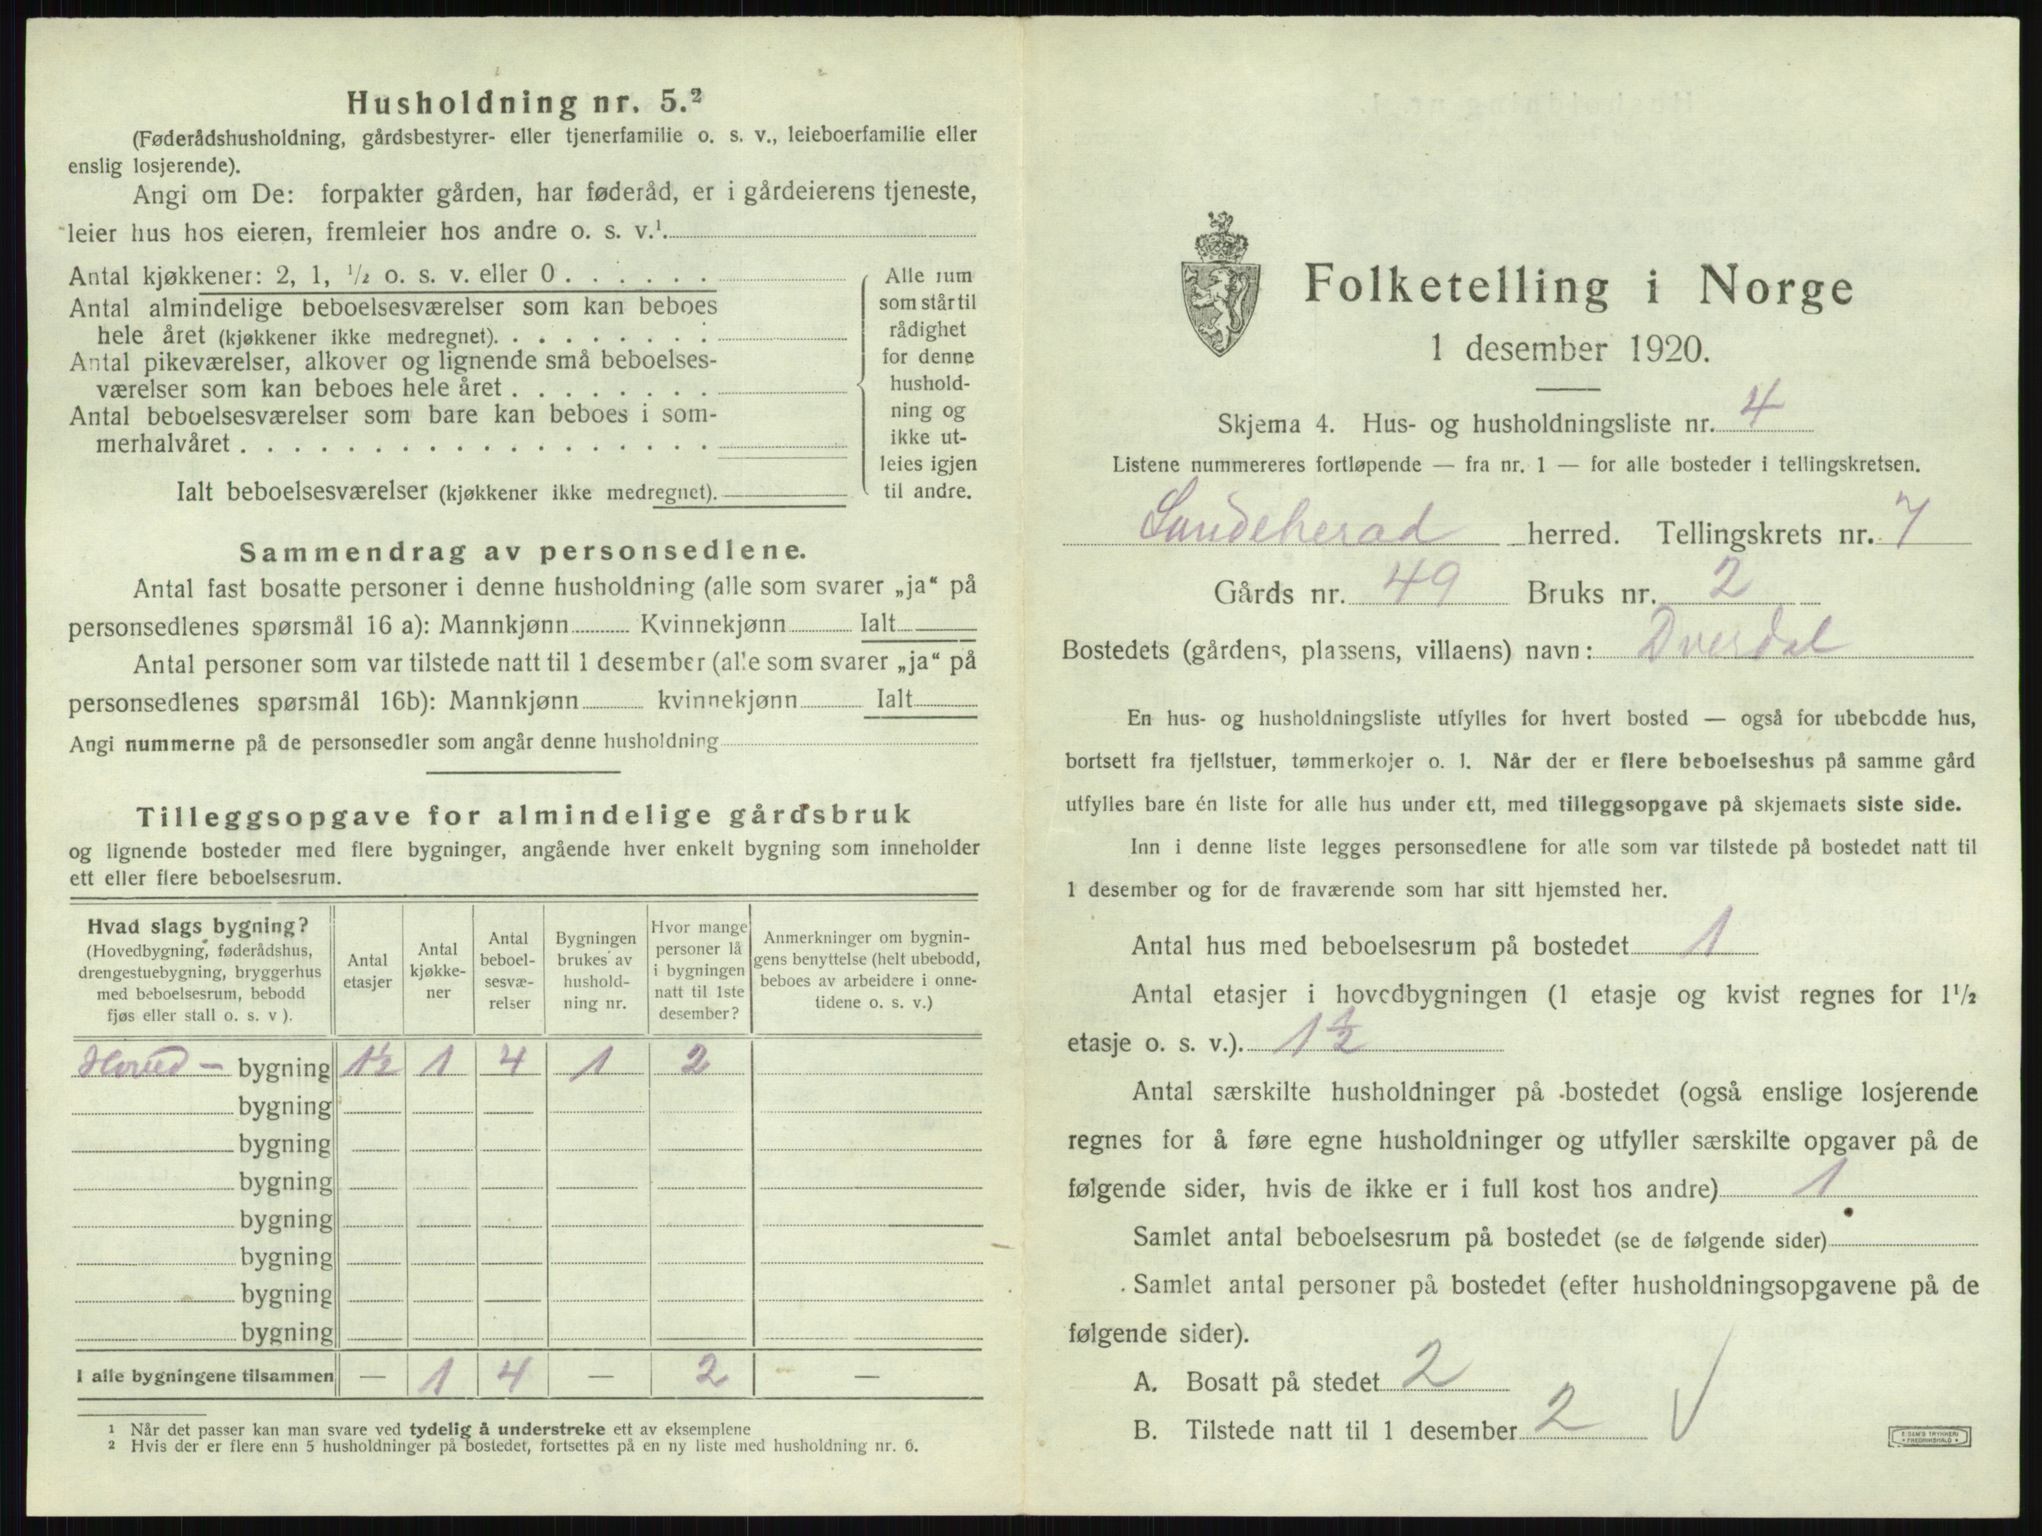 Husholdning nr. 5.²
(Føderådshusholdning, gårdsbestyrer- eller tjenerfamilie o. s. v., leieboerfamilie eller
enslig losjerende).
Angi om De: forpakter gården, har føderåd, er i gårdeierens tjeneste,
leier hus hos eieren, fremleier hos andre o. s. v.¹
Antal kjøkkener: 2, 1, ½ o. s. v. eller 0 . . . . . .
Antal almindelige beboelsesværelser som kan beboes
hele året (kjøkkener ikke medregnet). . . . . . . . .
Antal pikeværelser, alkover og lignende små beboelses-
værelser som kan beboes hele året . . . . . . . .
Antal beboelsesværelser som bare kan beboes i som-
merhalvåret . . . . . . . . . . . . . . . . . .
Ialt beboelsesværelser (kjøkkener ikke medregnet).
Alle rum
som står til
rådighet
for denne
hushold-
ning og
ikke ut-
leies igjen
til andre.
Sammendrag av personsedlene.
Antal fast bosatte personer i denne husholdning (alle som svarer „ja“ på
personsedlenes spørsmål 16 a): Mannkjønn Kvinnekjønn Ialt
Antal personer som var tilstede natt til 1 desember (alle som svarer „ja“ på
personsedlenes spørsmål 16b): Mannkjønn kvinnekjønn Ialt
Angi nummerne på de personsedler som angår denne husholdning
Tilleggsopgave for almindelige gårdsbruk
og lignende bosteder med flere bygninger, angående hver enkelt bygning som inneholder
ett eller flere beboelsesrum.
Hvad slags bygning?
(Hovedbygning, føderådshus,
drengestuebygning, bryggerhus
med beboelsesrum, bebodd
fjøs eller stall o. s. v ).
Antal
etasjer
Antal
kjøkke-
ner
Antal
beboel-
sesvæ-
relser
Bygningen
brukes av
hushold-
ning nr.
Hvor mange
personer lå
i bygningen
natt til 1ste
desember?
Anmerkninger om bygnin-
gens benyttelse (helt ubebodd,
beboes av arbeidere i onne-
tidene o. s. v.)
Hoved- bygning 1½ 1 4 1 2
bygning
bygning
bygning
bygning
bygning
bygning
bygning
I alle bygningene tilsammen — 1 4 — 2 —
¹ Når det passer kan man svare ved tydelig å understreke ett av eksemplene
² Hvis der er flere enn 5 husholdninger på bostedet, fortsettes på en ny liste med husholdning nr. 6.
Folketelling i Norge
1 desember 1920.
Skjema 4. Hus- og husholdningsliste nr. 4
Listene nummereres fortløpende — fra nr. 1 — for alle bosteder i tellingskretsen.
Sandeherad herred. Tellingskrets nr. 7
Gårds nr. 49 Bruks nr. 2
Bostedets (gårdens, plassens, villaens) navn: Dverdal
En hus- og husholdningsliste utfylles for hvert bosted — også for ubebodde hus,
bortsett fra fjellstuer, tømmerkojer o. l. Når der er flere beboelseshus på samme gård
utfylles bare én liste for alle hus under ett, med tilleggsopgave på skjemaets siste side.
Inn i denne liste legges personsedlene for alle som var tilstede på bostedet natt til
1 desember og for de fraværende som har sitt hjemsted her.
Antal hus med beboelsesrum på bostedet 1
Antal etasjer i hovedbygningen (1 etasje og kvist regnes for 1½
etasje o. s. v.). 1½
Antal særskilte husholdninger på bostedet (også enslige losjerende
regnes for å føre egne husholdninger og utfyller særskilte opgaver på de
følgende sider, hvis de ikke er i full kost hos andre) 1
Samlet antal beboelsesrum på bostedet (se de følgende sider)
Samlet antal personer på bostedet (efter husholdningsopgavene på de
følgende sider).
A. Bosatt på stedet 2
B. Tilstede natt til 1 desember 2